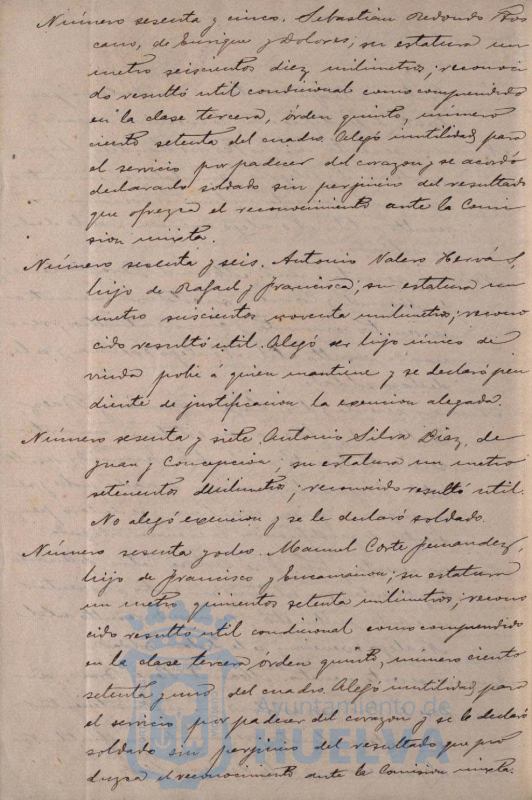 Número sesenta y cinco. Sebastian Redondo Tos
cano, de Enrique y Dolores; su estatura un
metro seiscientos diez milimetros; reconoci
do resultó util condicional como comprendido
en la clase tercera, órden quinto, número
ciento setenta del cuadro. Alegó inutilidad para
el servicio por padecer del corazon y se acordó
declararlo soldado sin perjuicio del resultado
que ofrezca el reconocimiento ante la Comi
sion mixta.
Número sesenta y seis. Antonio Valero Hervás,
hijo de Rafael y Francisca; su estatura un
metro seiscientos noventa milimetros; recono
cido resultó util. Alegó ser hijo único de
viuda pobre á quien mantiene y se declaró pen
diente de justificacion la exencion alegada.
Número sesenta y siete. Antonio Silva Diaz, de
Juan y Concepcion; su estatura un metro
setecientos milimetros; reconocido resultó util.
No alegó exencion y se le declaró soldado.
Número sesenta y ocho. Manuel Corte Fernandez,
hijo de Francisco y Encarnacion; su estatura
un metro quinientos setenta milimetros; recono
cido resultó util condicional como comprendido
en la clase tercera, órden quinto, número ciento
setenta y uno del cuadro. Alegó inutilidad para
el servicio por padecer del corazon y se le declaró
soldado sin perjuicio del resultado que pro
duzca el reconocimiento ante la Comision mixta.
Ayuntamiento de
HUELVA